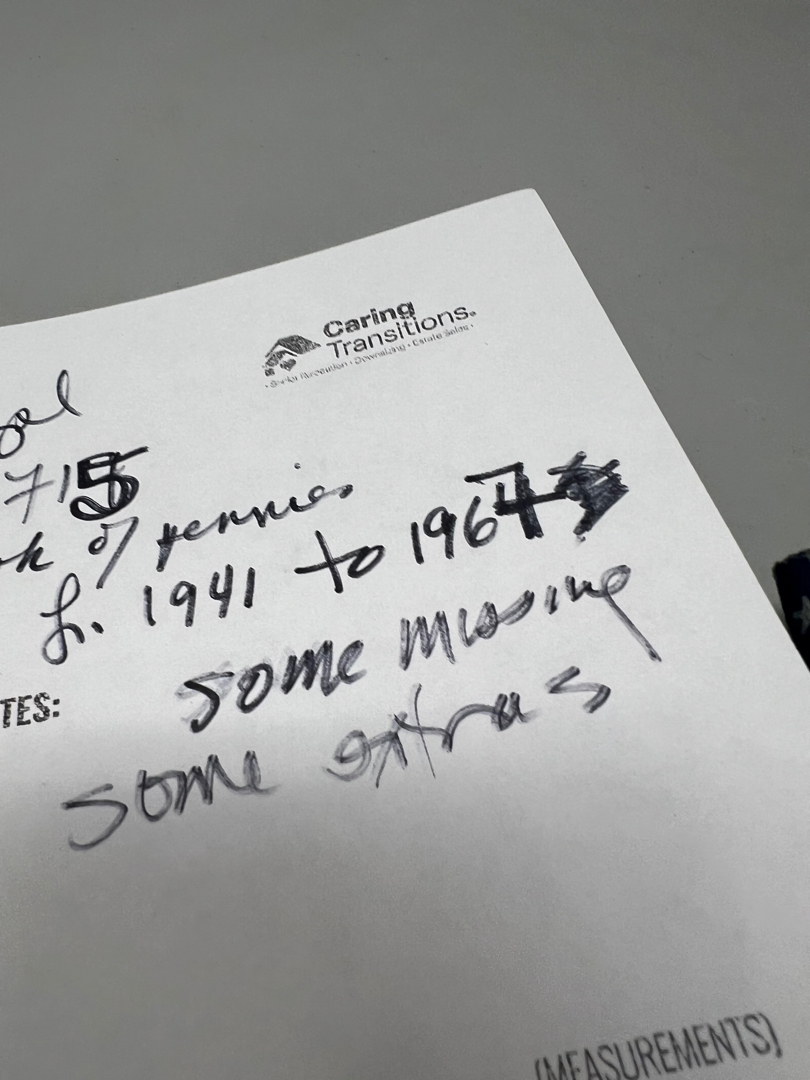 Caring
Transitions
· Senior Relocation · Downsizing · Estate Sales ·
715
of pennies
1941 to 1964
some missing
TES:
some extras
(MEASUREMENTS)